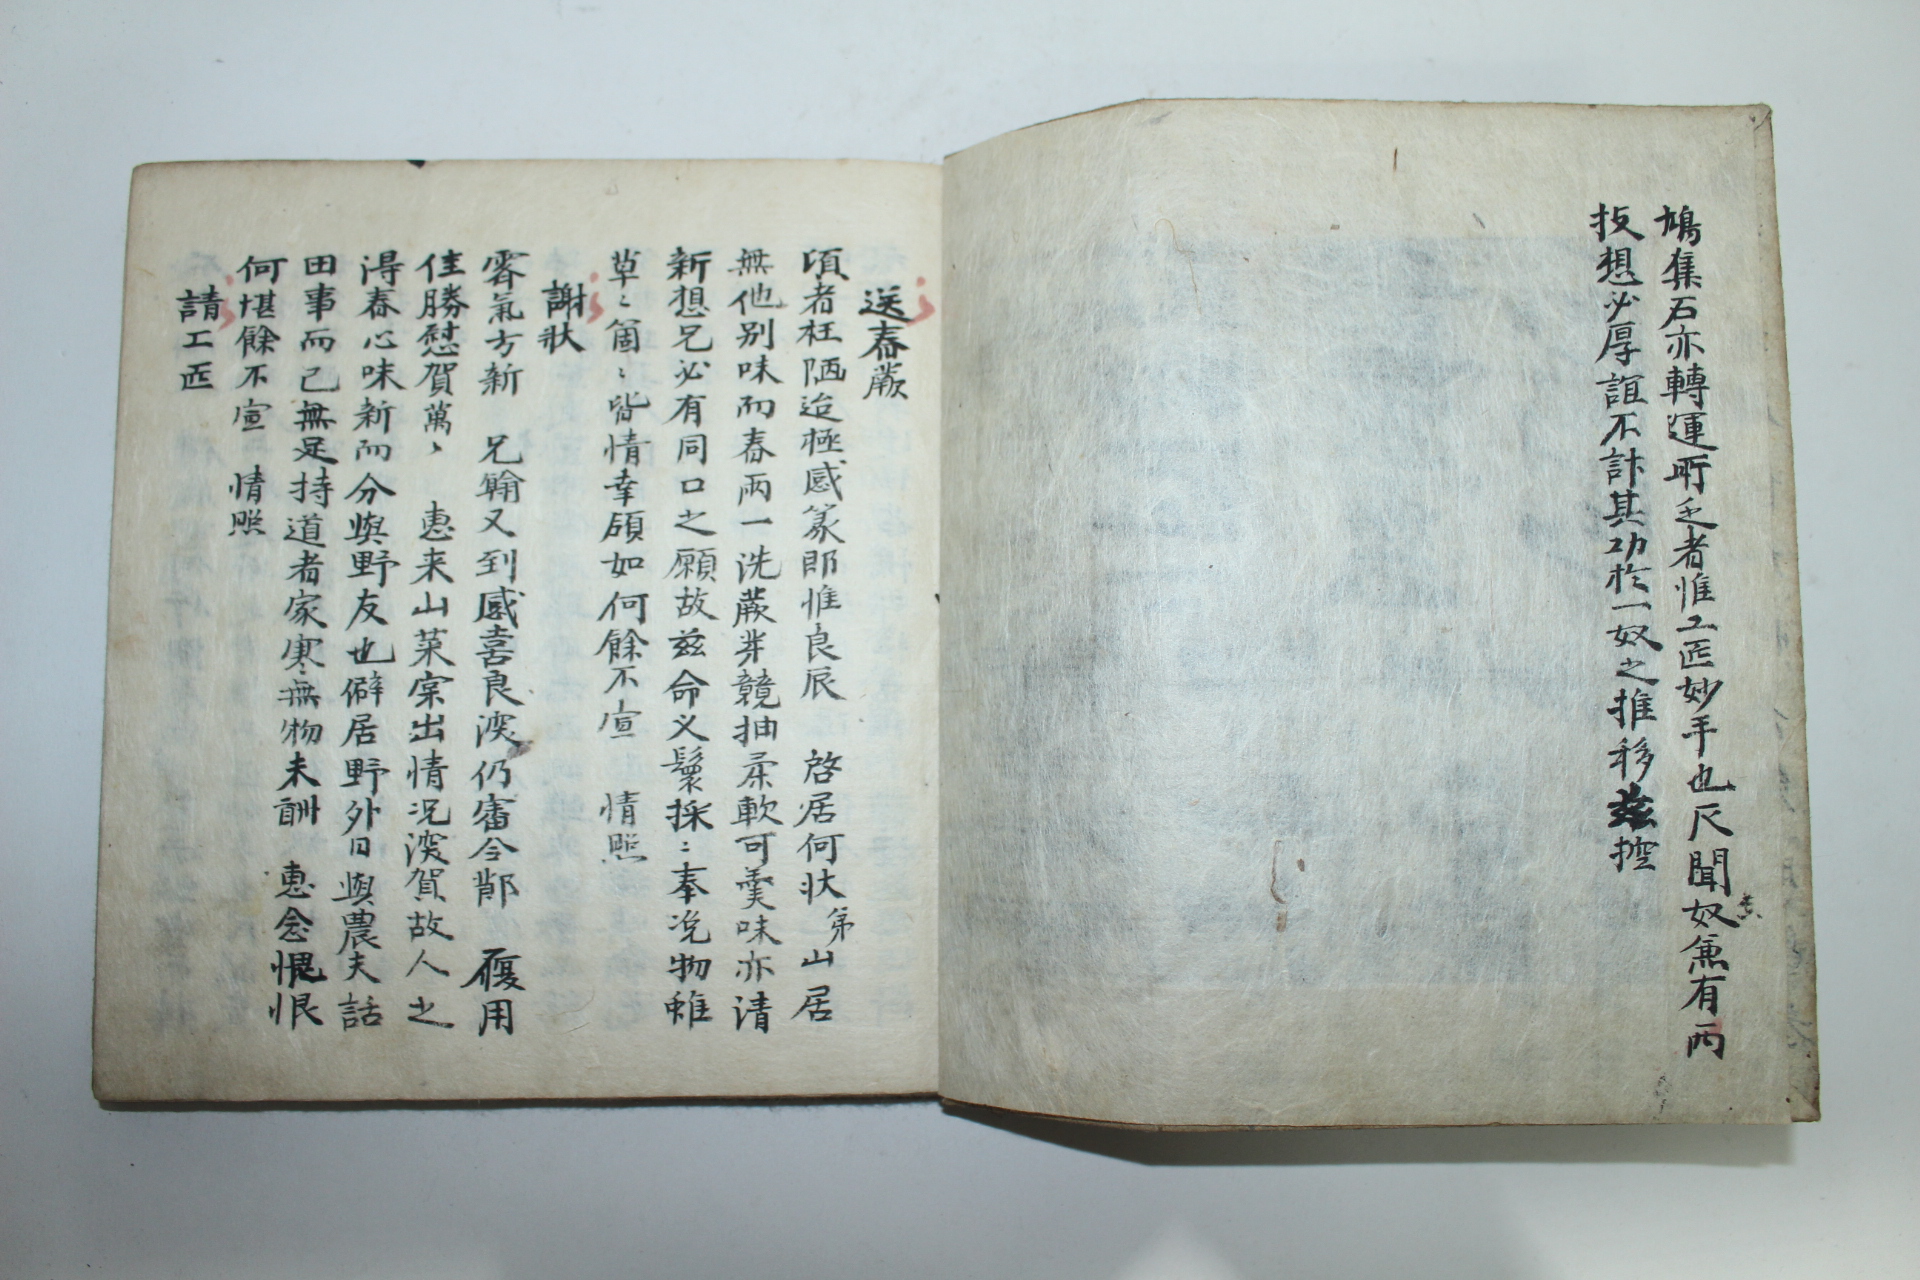 鳩集石亦轉運所乏者惟工匠妙手也仄聞奴兼有兩
技想必厚誼不計其功於一奴之推移玆控
送春蕨
頃者枉陋迨極感篆即惟良辰 啓居何狀弟山居
無他別味而春雨一洗蕨芽競抽柔軟可羹味亦清
新想兄必有同口之願故玆命义鬟採〻奉况物雖
草〻箇〻皆情幸領如何餘不宣 情照
謝狀
霽氣方新 兄翰又到感喜良深仍審今鄁 履用
佳勝慰賀萬〻 惠来山菜寀出情况深賀故人之
淂春心味新而分與野友也僻居野外日與農夫話
田事而已無足持道者家寒無物未酬 惠念愧恨
何堪餘不宣 情照
請工匠